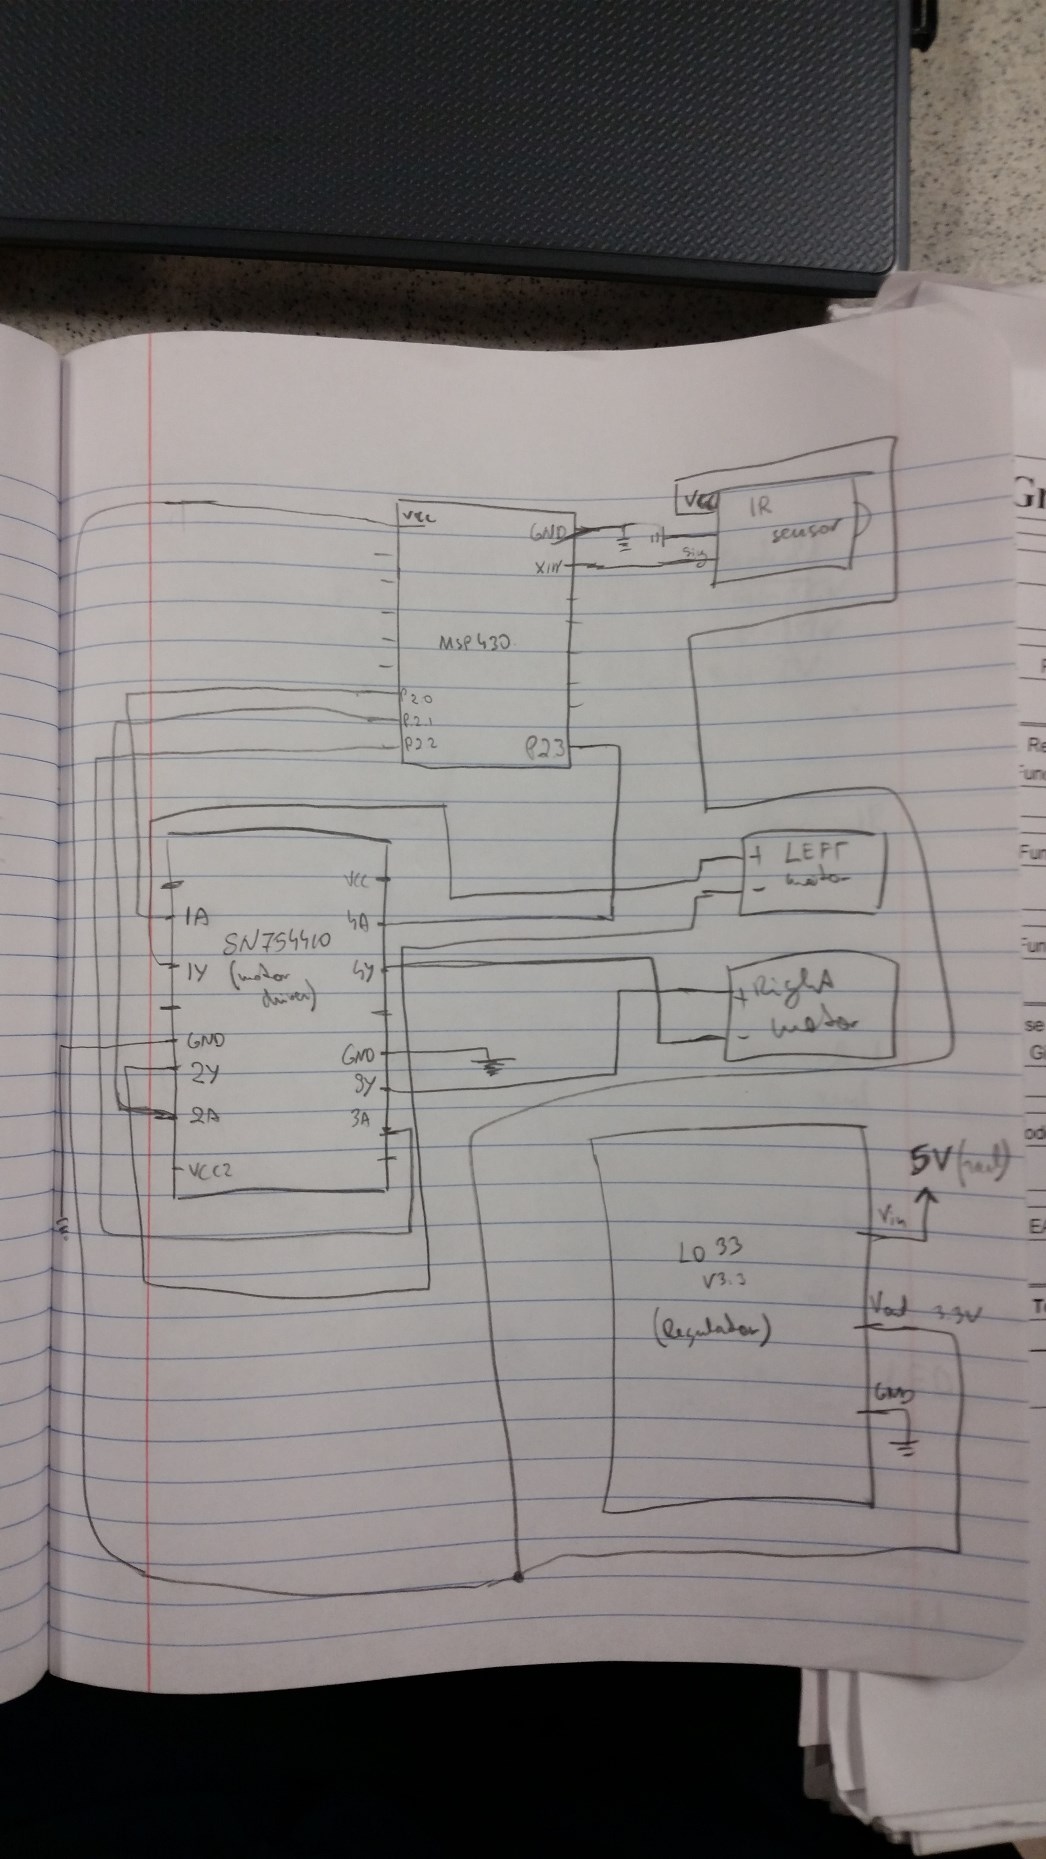 VCC
GND
XIN
MSP430
P2.0
P2.1
P22
P23
VCC
IR
sensor
Sig
VCC
1A
4A
SN754410
(motor
driver)
1Y
4Y
GND
GND
2Y
3Y
2A
3A
VCC2
+ LEFT
- motor
+ Right
- motor
5V (rail)
Vin
LD 33
V3.3
(Regulador)
Vout 3.3V
GND
Gr
Re
Fun
Fun
se
G
Te